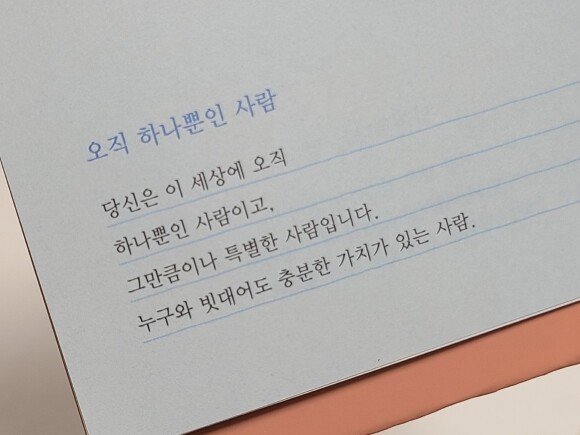 오직 하나뿐인 사람
당신은 이 세상에 오직
하나뿐인 사람이고,
그만큼이나 특별한 사람입니다.
누구와 빗대어도 충분한 가치가 있는 사람.